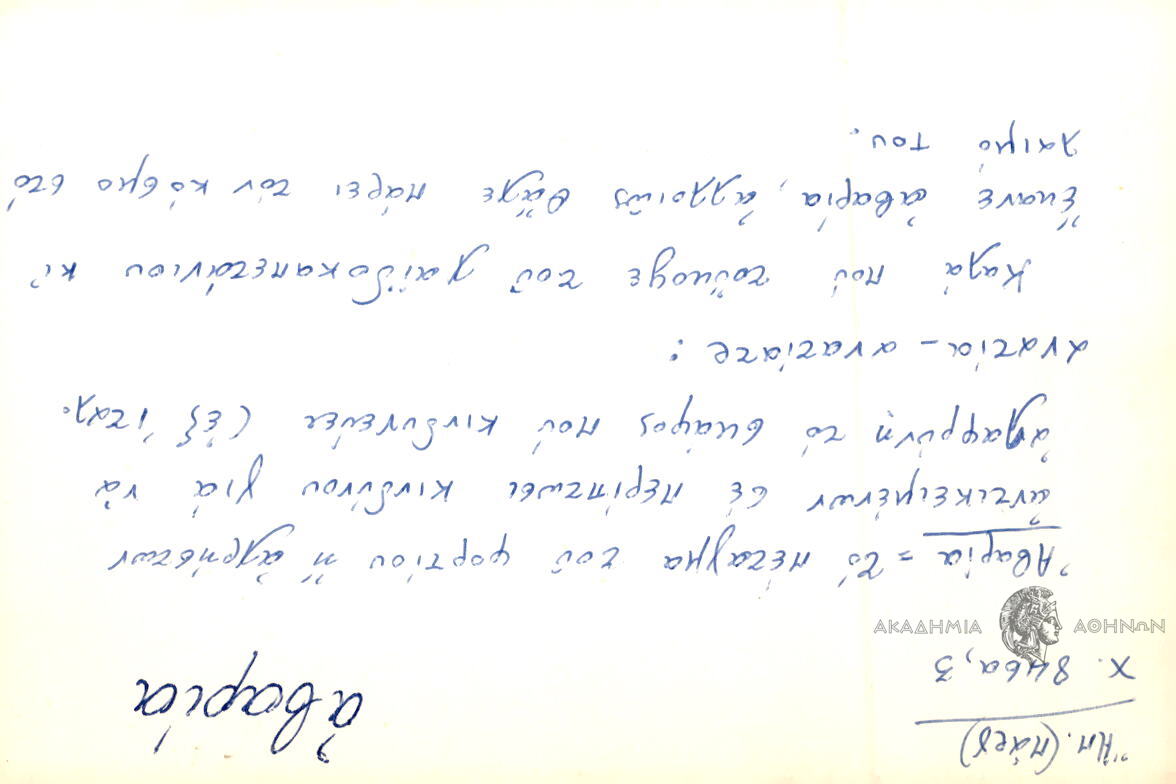 Ἠπ. (Πάργ)
Χ. 846α, 3
ἀβαρία
ΑΚΑΔΗΜΙΑ ΑΘΗΝΩΝ
Ἀβαρία = τό πέταγμα τοῦ φορτίου ἤ ἀχρήστων
ἀντικειμένων σέ περίπτωσι κινδύνου γιά νά
ἀλαφρύνῃ τό σκάφος πού κινδυνεύει (ἐξ ἰταλ.
avazia - avaziare :
Καλά πού τοὔκοψε τοῦ γαϊδοκαπετάνιου κι
ἔκανε ἀβαρία, ἀλλοιῶς θἆχε πάρει τόν κόσμο στό
λαιμό του.